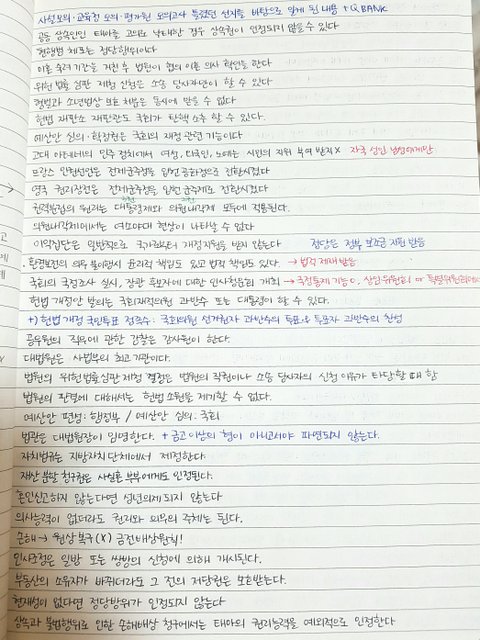 사설모의·교육청 모의·평가원 모의고사 틀렸던 선지를 바탕으로 알게 된 내용 + Q BANK
공동 상속인인 태아를 고의로 낙태한 경우 상속권이 인정되지 않을 수 있다
현행범 체포는 정당행위이다
이혼 숙려기간을 거친 후 법원이 협의 이혼 의사 확인을 한다
위헌 법률 심판 제청 신청은 소송 당사자만이 할 수 있다
형벌과 소년법상 보호 처분은 동시에 받을 수 없다
헌법 재판소 재판관도 국회가 탄핵 소추 할 수 있다.
예산안 심의·확정권은 국회의 재정 관련 기능이다
고대 아테네의 민주 정치에서 여성, 외국인, 노예는 시민의 지위 부여 받지 X 자국 성인 남성에게만
프랑스 인권선언은 전제군주정을 입헌 공화정으로 전환시켰다
영국 권리장전은 전제군주정을 입헌 군주제로 전환시켰다
권력분립의 원리는 대통령제와 의원내각제 모두에 적용된다.
의원내각제에서는 여소야대 현상이 나타날 수 없다
이익집단은 일반적으로 국가로부터 재정지원을 받지 않는다 정당은 정부 보조금 지원 받음
환경보전의 의무 불이행시 윤리적 책임도 있고 법적 책임도 있다 → 법적 제재 받음
국회의 국정조사 실시, 장관 후보자에 대한 인사청문회 개최 → 국정통제 기능 O, 상임위원회 or 특별위원회에서
헌법 개정안 발의는 국회재적의원 과반수 또는 대통령이 할 수 있다.
+) 헌법 개정 국민투표 정족수: 국회의원 선거권자 과반수의 투표와 투표자 과반수의 찬성
공무원의 직무에 관한 감찰은 감사원이 한다.
대법원은 사법부의 최고 기관이다.
법원의 위헌법률심판 제청 결정은 법원의 직권이나 소송 당사자의 신청 이유가 타당할 때 함
법원의 판결에 대해서는 헌법 소원을 제기할 수 없다.
예산안 편성: 행정부 / 예산안 심의: 국회
법관은 대법원장이 임명한다. + 금고 이상의 형이 아니고서야 파면되지 않는다.
자치법규는 지방자치 단체에서 제정한다.
재산 분할 청구권은 사실혼 부부에게도 인정된다.
혼인신고하지 않는다면 성년의제 되지 않는다
의사능력이 없더라도 권리와 의무의 주체는 된다.
손해 → 원상 복구(X) 금전배상원칙!
민사조정은 일방 또는 쌍방의 신청에 의해 개시된다.
부동산의 소유자가 바뀌더라도 그 전의 저당권은 보호받는다.
현재성이 없다면 정당방위가 인정되지 않는다
상속과 불법행위로 인한 손해배상 청구에서는 태아의 권리능력을 예외적으로 인정한다